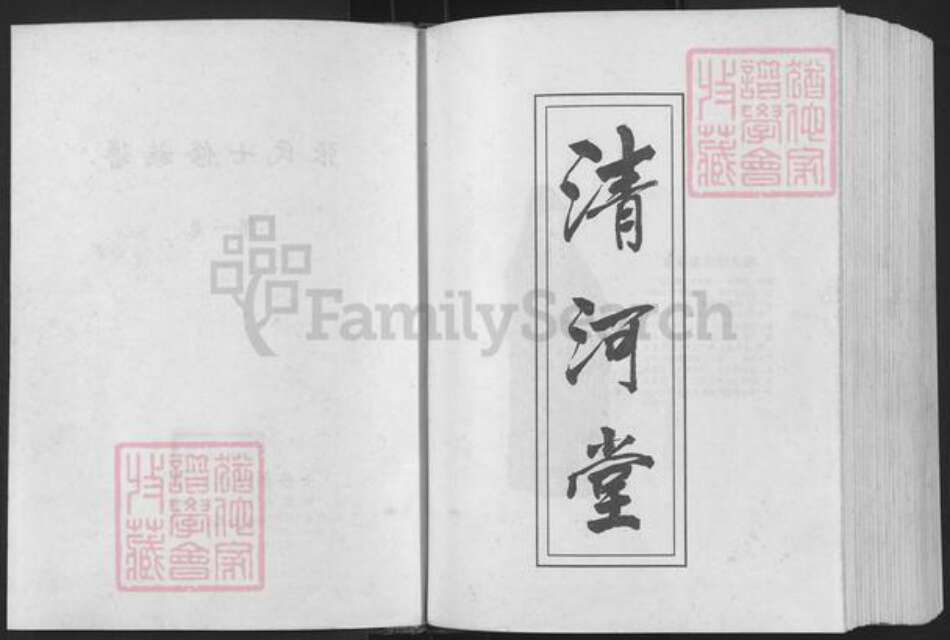 清河堂
猶他家
譜學會
收藏
FamilySearch
猶他家
譜學會
收藏